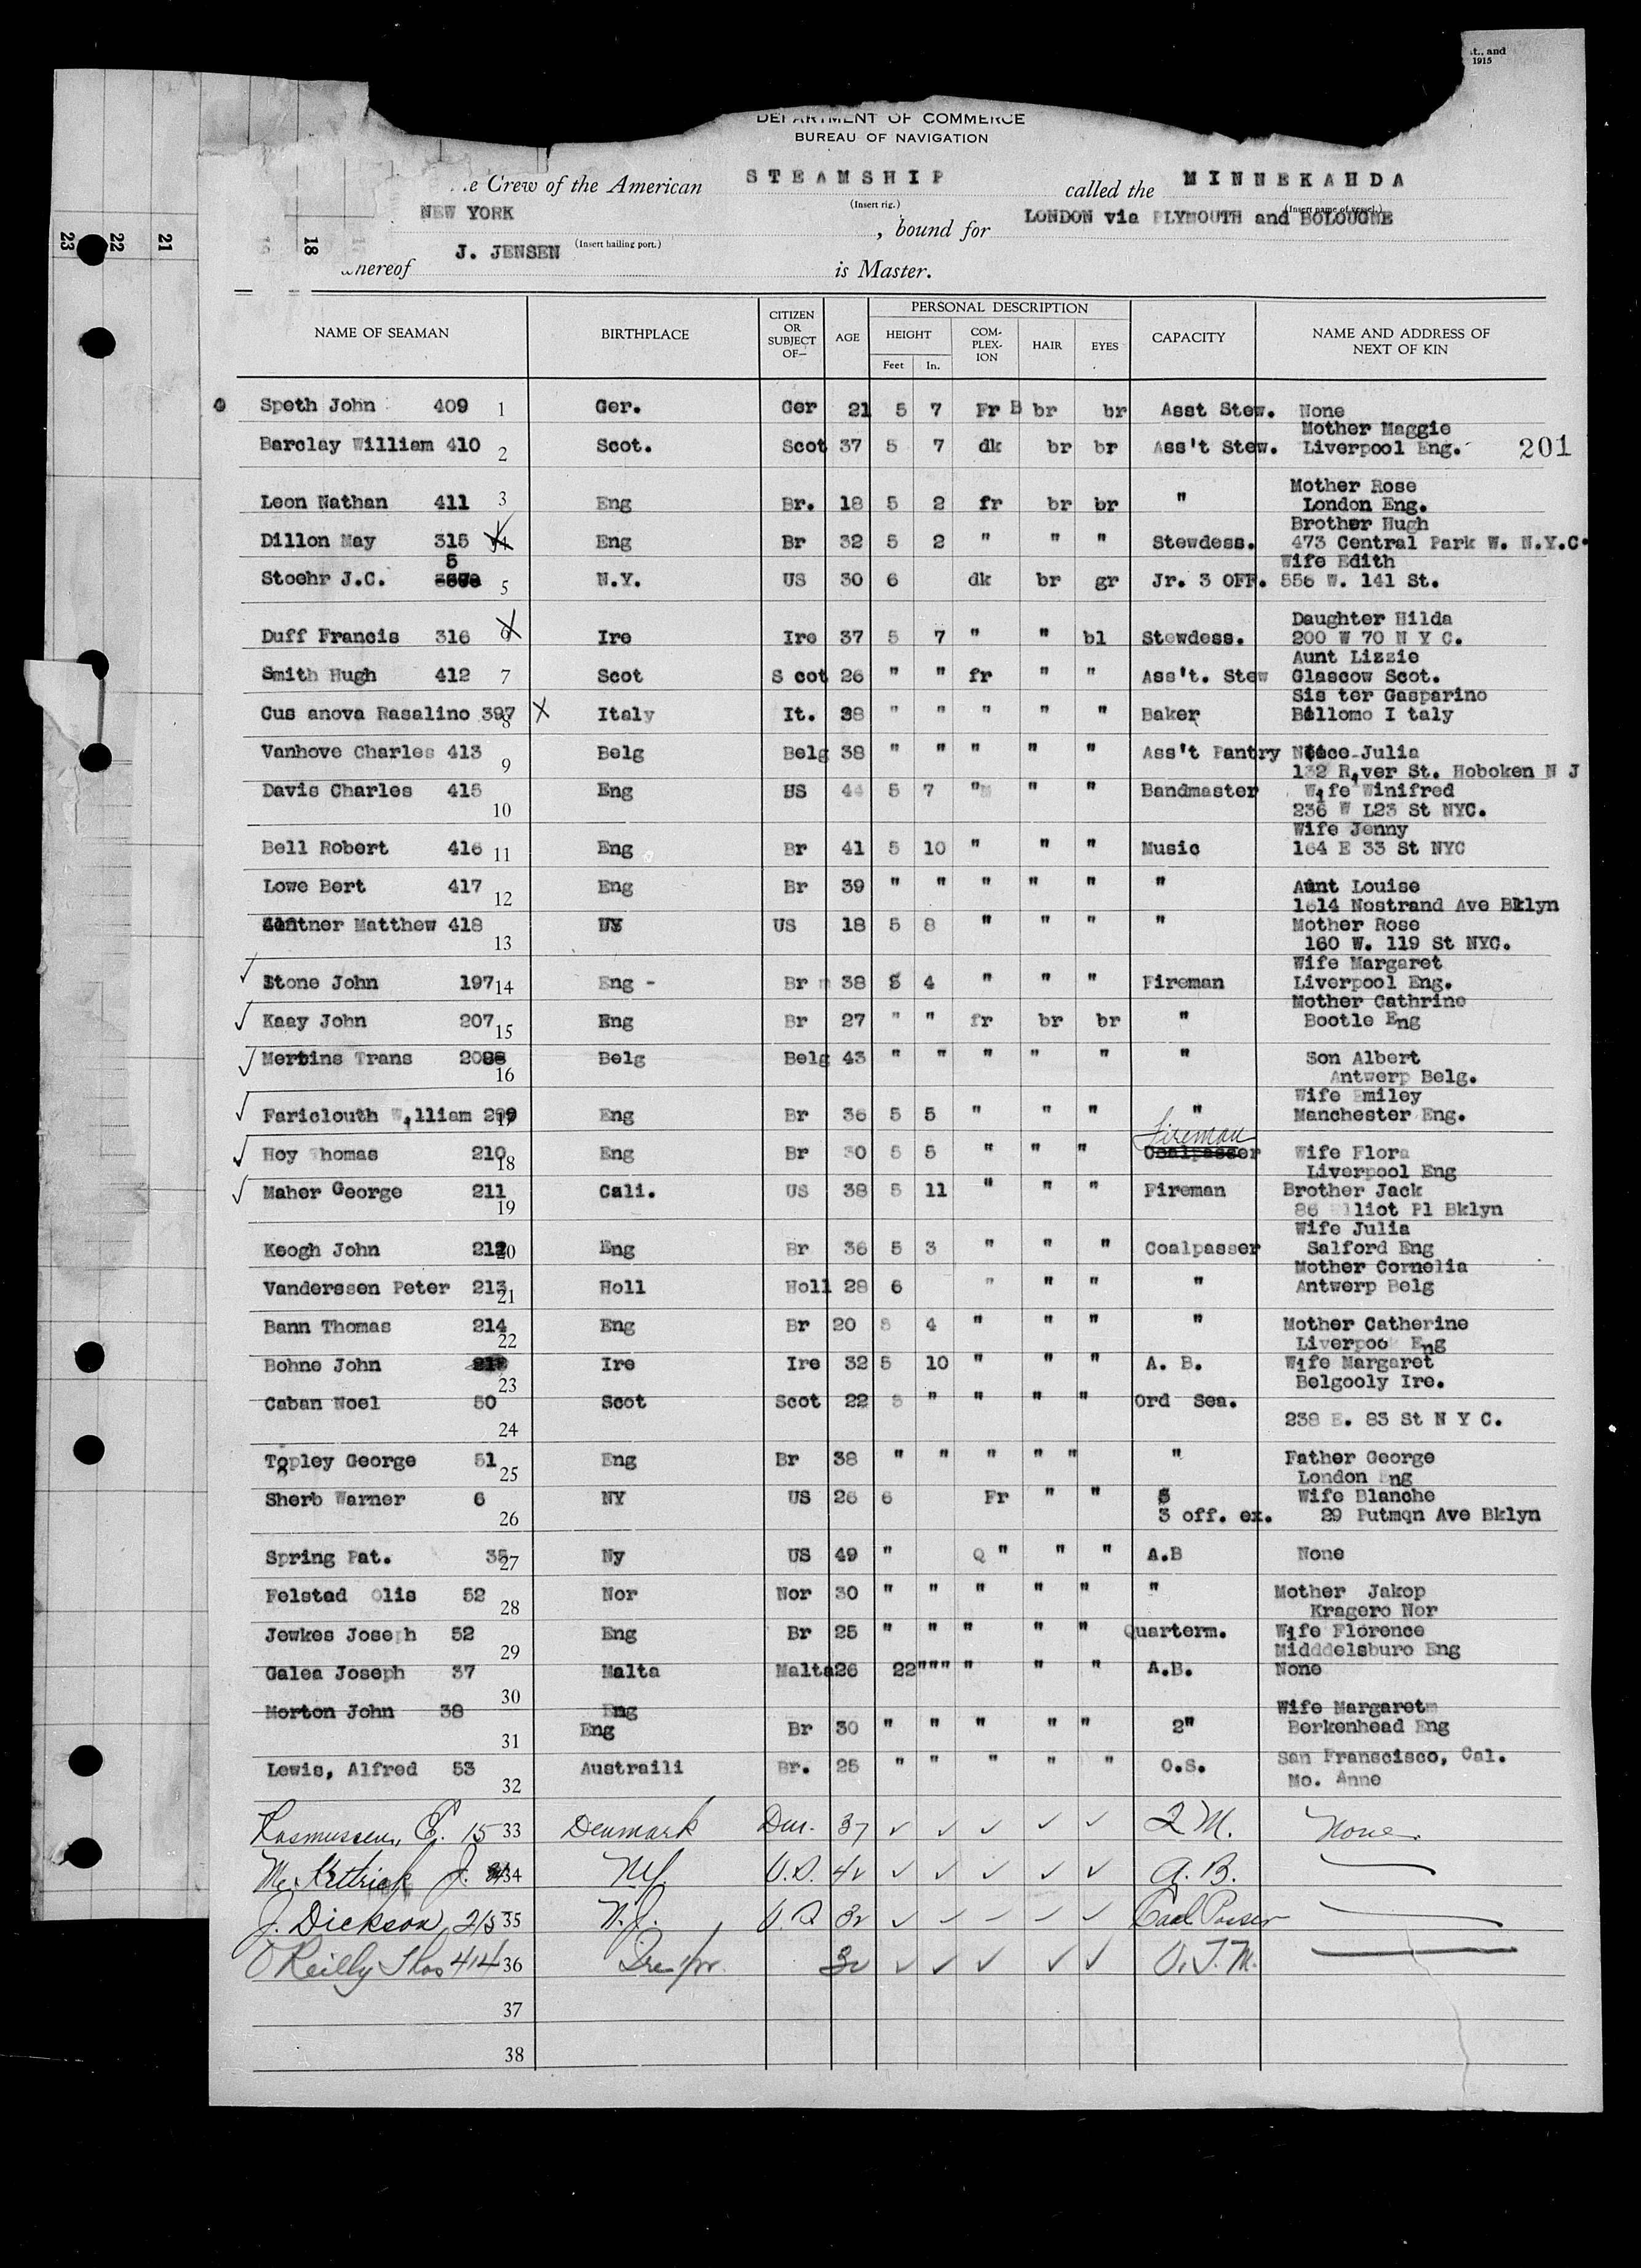 t., and
1915
DEPARTMENT OF COMMERCE
BUREAU OF NAVIGATION
e Crew of the American STEAMSHIP called the MINNEKAHDA
(Insert rig.) (Insert name of vessel.)
NEW YORK , bound for LONDON via PLYMOUTH and BOLOUGNE
(Insert hailing port.)
whereof J. JENSEN is Master.
23 22 21 18
NAME OF SEAMAN BIRTHPLACE CITIZEN OR SUBJECT OF— AGE PERSONAL DESCRIPTION CAPACITY NAME AND ADDRESS OF NEXT OF KIN
HEIGHT COM-PLEX-ION HAIR EYES
Feet In.
Speth John 409 1 Ger. Ger 21 5 7 Fr B br br Asst Stew. None
Mother Maggie
Barclay William 410 2 Scot. Scot 37 5 7 dk br br Ass't Stew. Liverpool Eng. 201
Mother Rose
Leon Nathan 411 3 Eng Br. 18 5 2 fr br br " London Eng.
Brother Hugh
Dillon May 315 4 Eng Br 32 5 2 " " " Stewdess. 473 Central Park W. N.Y.C.
5 Wife Edith
Stoehr J.C. 5 N.Y. US 30 6 dk br gr Jr. 3 OFF. 556 W. 141 St.
Daughter Hilda
Duff Francis 316 6 Ire Ire 37 5 7 " " bl Stewdess. 200 W 70 N Y C.
Aunt Lizzie
Smith Hugh 412 7 Scot S cot 26 " " fr " " Ass't. Stew Glascow Scot.
Sis ter Gasparino
Cus anova Rasalino 397 8 X Italy It. 38 " " " " " Baker Bellomo I taly
Vanhove Charles 413 9 Belg Belg 38 " " " " " Ass't Pantry Niece Julia
132 River St. Hoboken N J
Davis Charles 415 10 Eng US 44 5 7 " " " Bandmaster Wife Winifred
236 W L23 St NYC.
Wife Jenny
Bell Robert 416 11 Eng Br 41 5 10 " " " Music 164 E 33 St NYC
Lowe Bert 417 12 Eng Br 39 " " " " " " Aunt Louise
1614 Nostrand Ave Bklyn
Matthew 418 13 NY US 18 5 8 " " " " Mother Rose
160 W. 119 St NYC.
Wife Margaret
Stone John 197 14 Eng - Br 38 5 4 " " " Fireman Liverpool Eng.
Mother Cathrine
Kaay John 207 15 Eng Br 27 " " fr br br " Bootle Eng
Mertins Trans 16 Belg Belg 43 " " " " " " Son Albert
Antwerp Belg.
Wife Emiley
Fariclouth William 17 Eng Br 36 5 5 " " " " Manchester Eng.
Fireman
Hoy Thomas 210 18 Eng Br 30 5 5 " " " Coalpasser Wife Flora
Liverpool Eng
Maher George 211 19 Cali. US 38 5 11 " " " Fireman Brother Jack
86 Elliot Pl Bklyn
Wife Julia
Keogh John 212 20 Eng Br 36 5 3 " " " Coalpasser Salford Eng
Mother Cornelia
Vanderssen Peter 213 21 Holl Holl 28 6 " " " " Antwerp Belg
Bann Thomas 214 22 Eng Br 20 5 4 " " " " Mother Catherine
Liverpool Eng
Bohne John 23 Ire Ire 32 5 10 " " " A. B. Wife Margaret
Belgooly Ire.
Caban Noel 50 24 Scot Scot 22 5 " " " " Ord Sea.
238 E. 83 St N Y C.
Topley George 51 25 Eng Br 38 " " " " " " Father George
London Eng
Sherb Warner 6 26 NY US 26 6 Fr " " Wife Blanche
3 off. ex. 29 Putmqn Ave Bklyn
Spring Pat. 35 27 Ny US 49 " Q " " " A.B None
Felsted Olis 52 28 Nor Nor 30 " " " " " " Mother Jakop
Kragero Nor
Jewkes Joseph 52 29 Eng Br 25 " " " " " Quarterm. Wife Florence
Midddelsburo Eng
Galea Joseph 37 30 Malta Malta 26 22 " " " " " " A.B. None
Morton John 38 Eng Wife Margaret
31 Eng Br 30 " " " " " 2" Berkenhead Eng
Lewis, Alfred 53 32 Austraili Br. 25 " " " " " O.S. San Franscisco, Cal.
Mo. Anne
Rasmussen, C. 15 33 Denmark Den. 37 ✓ ✓ ✓ ✓ ✓ Q M. None
McKettrick J. 34 NY. U.S. 42 ✓ ✓ ✓ ✓ ✓ A. B.
J. Dickson, 215 35 N.J. U.S 32 ✓ ✓ ✓ ✓ Coal Passer
O'Reilly Thos 414 36 Ire 32 ✓ ✓ ✓ ✓ ✓ O. J. M.
37
38